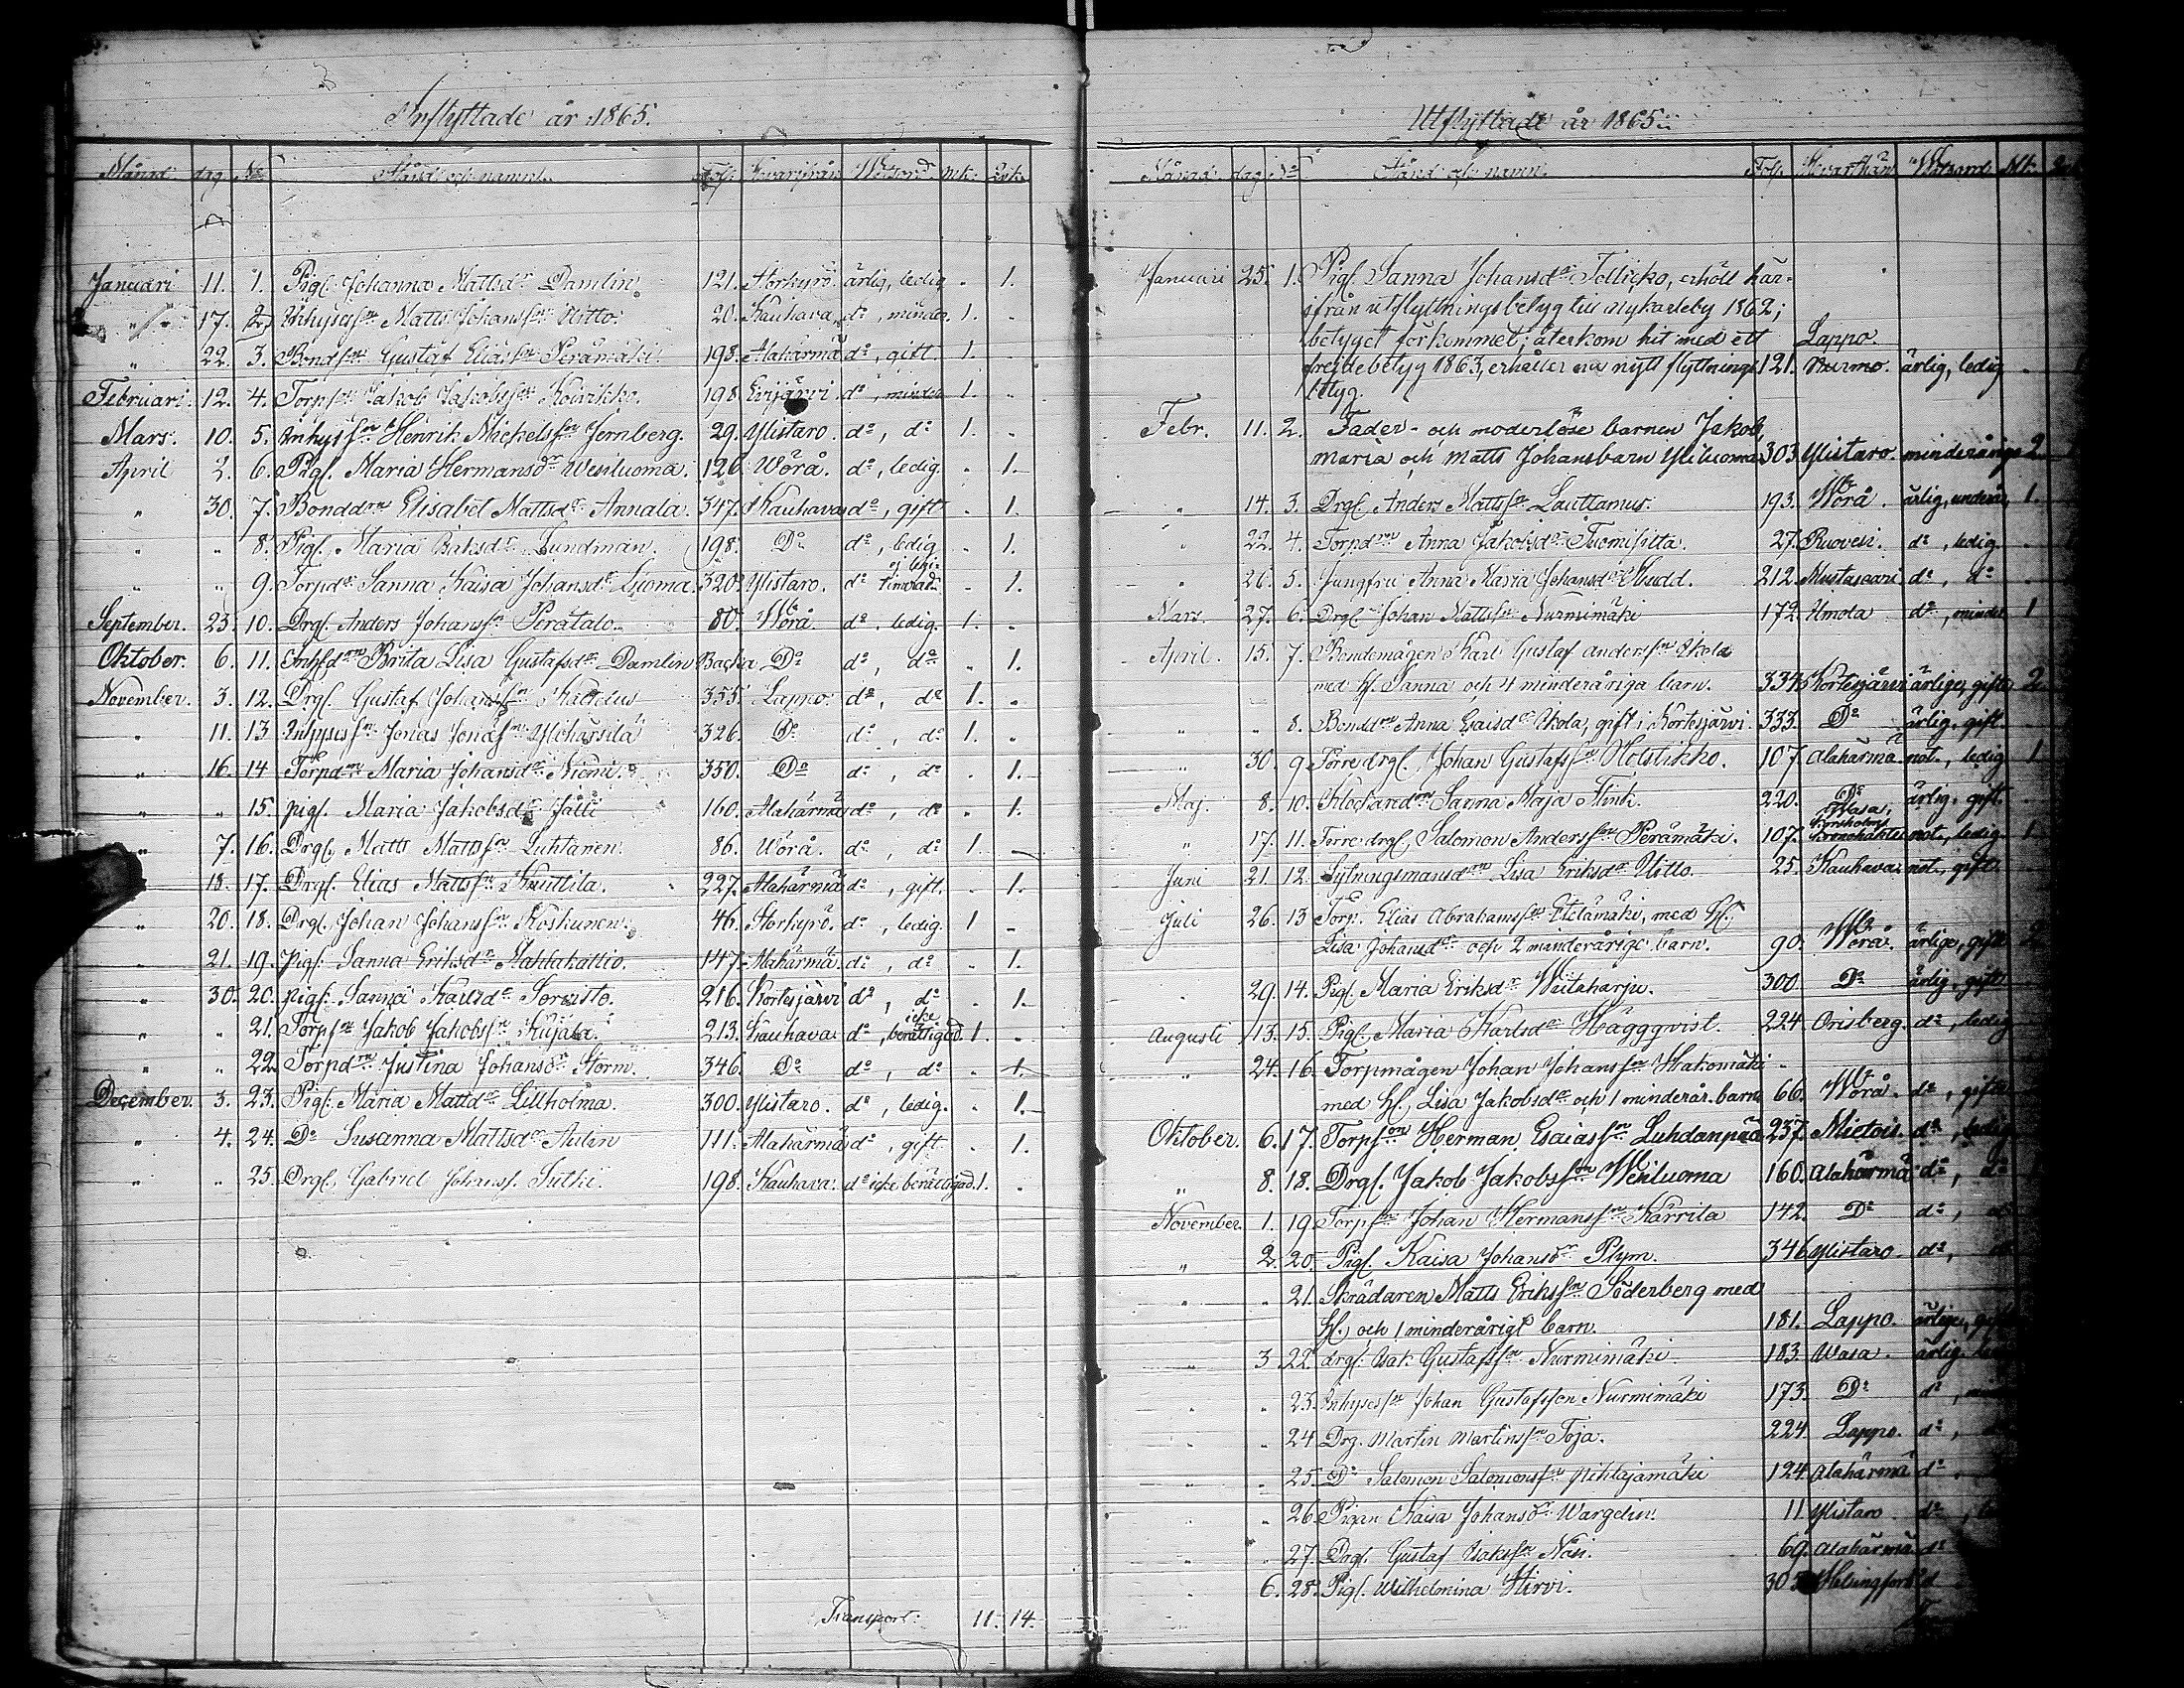 Inflyttade år 1865.
Månad. dag. No Stånd och namn. Fol. Hvarifrån Witsord mk. Qvk.
Januari 11. 1. Pigf. Johanna Mattsdr Damlin 121. Storkyrö ärlig, ledig . 1.
" 17. 2. Inhysesson Matts Johansson Uitto. 20. Kauhava do, minder. 1. .
" 22. 3. Bondson Gustaf Eliasson Perämäki 198. Alahärmä do, gift. 1.
Februari. 12. 4. Torpson Jakob Jakobsson Koivikko. 198 Evijärvi. do, minder 1. .
Mars. 10. 5. Inhysson Henrik Mickelsson Jernberg. 29. Ylistaro. do, do 1. .
April 2. 6. Pigf. Maria Hermansdr Wesiluoma. 126 Wörå. do, ledig. . 1.
" 30. 7. Bonddrn Elisabet Mattsdr Annala. 347. Kauhava do, gift . 1.
" " 8. Pigf. Maria Isaksdr Sundman. 198. Do do, ledig . 1.
" " 9. Torpdr Sanna Kaisa Johansdr Luoma. 320. Ylistaro. do . 1.
September. 23. 10. Drgf. Anders Johansson Perätalo. 80. Wörå do. ledig. 1. .
Oktober. 6. 11. Inhysdrn Brita Lisa Gustafsdr Damlin Backa Do do, do . 1.
November. 3. 12. Drgf. Gustaf Johansson 355. Lappo. do, do 1. .
" 11. 13 Inhysesson Jonas Jonasson Ylihärsilä 326. Do do, do 1. .
" 16. 14 Torpdrn Maria Johansdr Niemi. 350. Do do, do . 1.
" " 15. pigf. Maria Jakobsdr Jälli 160. Alahärmä do, do . 1.
" 7. 16. Drgf. Matts Mattsson Luhtanen. 86. Wörå. do, do 1.
" 18. 17. Drgf. Elias Mattsson Knuttila. 227. Alahärmä do, gift. . 1.
" 20. 18. Drgf. Johan Johansson Koskunen. 46. Storkyrö. do, ledig. 1
" 21. 19. pigf. Sanna Eriksdr Mahlakallio. 147. Alahärmä. do, do . 1.
" 30. 20. pigf. Sanna Karlsdr Sorvisto. 216. Kortesjärvi do, do . 1.
" " 21. Torpson Jakob Jakobsson Kujala. 213. Kauhava do, icke berättigad. 1. .
" " 22. Torpdrn Justina Johansdr Storm. 346. Do do, do . 1.
December. 3. 23. Pigf. Maria Mattsdr Lillholma. 300. Ylistaro. do, ledig. . 1.
" 4. 24. Do Susanna Mattsdr Aulin 111. Alahärmä do, gift . 1.
" " 25. Drgf. Gabriel Johanss. Sulki. 198. Kauhava. do icke berättigad. 1. .
Transport: 11. 14.
Utflyttade år 1865.
Månad. dag. No Stånd och namn. Fol. Hvarthän Witsord. Mk.
Januari 25. 1. Pigf. Sanna Johansdr Tollikko, erhöll här-
ifrån utflyttningsbetyg till Nykarleby 1862;
betyget förkommet; återkom hit med ett Lappo
frejdebetyg 1863, erhåller nu nytt flyttnings 121. Nurmo. ärlig, ledig
betyg.
Febr. 11. 2. Fader- och moderlöse barnen Jakob,
Maria och Matts Johansbarn Yliluoma 303. Ylistaro. minderårige 2.
" 14. 3. Drgf. Anders Mattsson Lauttamus. 193. Wörå. ärlig, 1.
" 22. 4. Torpdrn Anna Jakobsdr Tuomisilta. 27. Ruovesi. do, ledig.
" 26. 5. Jungfru Anna Maria Johansdr Kudd. 212. Mustasaari do, do
Mars. 27. 6. Drgf. Johan Mattsson Nurmimäki 172. Umola do, minder 1
April. 15. 7. Bondemågen Karl Gustaf Andersson Skola
med h. Sanna och 4 minderåriga barn. 333. Kortesjärvi ärlige, gifte 2
" " 8. Bonddrn Anna Esaisdr Skola, gift i Kortesjärvi. 333. Do ärlig. gift.
" 30. 9 Förre drgf. Johan Gustafsson Holstikko. 107. Alahärmä. not., ledig 1
Maj. 8. 10. Klockardrn Sanna Maja Flink. 220. Do ärlig. gift.
" 17. 11. Förre drgf. Salomon Andersson Perämäki. 107. Wasa, Korsholms kronohäkte not., ledig 1
Juni 21. 12. Sytningsmansdrn Lisa Eriksdr Uitto. 25. Kauhava. not., gift
Juli 26. 13 Torp. Elias Abrahamsson Etelämäki, med h.
Lisa Johansdr och 2 minderårige barn. 90. Wörå. ärlige, gifte 2
" 29. 14. Pigf. Maria Eriksdr Wiitaharju. 300. Do ärlig. gift
Augusti 13. 15. Pigf. Maria Karlsdr Häggqvist. 224. Orisberg. do, ledig
" 24. 16. Torpmågen Johan Johansson Hakomäki
med h. Lisa Jakobsdr och 1 minderår. barn 66. Wörå. do, gifte
Oktober. 6. 17. Torpson Herman Esaiasson Luhdanpää 237. Mietois. do, ledig
" 8. 18. Drgf. Jakob Jakobsson Wesiluoma 160. Alahärmä do, do
November. 1. 19. Torpson Johan Hermansson Kärrila 142. Do do,
" 2. 20. Pigf. Kaisa Johansdr Plym. 346 Ylistaro. do,
" " 21. Skrädaren Matts Eriksson Söderberg med
h. och 1 minderårigt barn. 181. Lappo. ärlige, gift
" 3 22. drgf. Isak Gustafsson Nurmimäki 183. Wasa. ärlig.
" " 23. Inhysesson Johan Gustafsson Nurmimäki 173. Do do,
" " 24. Drg. Martin Martinsson Toja. 224. Lappo. do,
" " 25. Do Salomon Salomonsson Pihlajamäki 124. Alahärmä do
" " 26. Pigan Kaisa Johansdr Wargelin. 11 Ylistaro do,
" " 27. Drgf. Gustaf Isaksson Näsi. 69. Alahärmä do
" 6. 28. Pigf. Wilhelmina Hirvi. 305 Helsingfors d